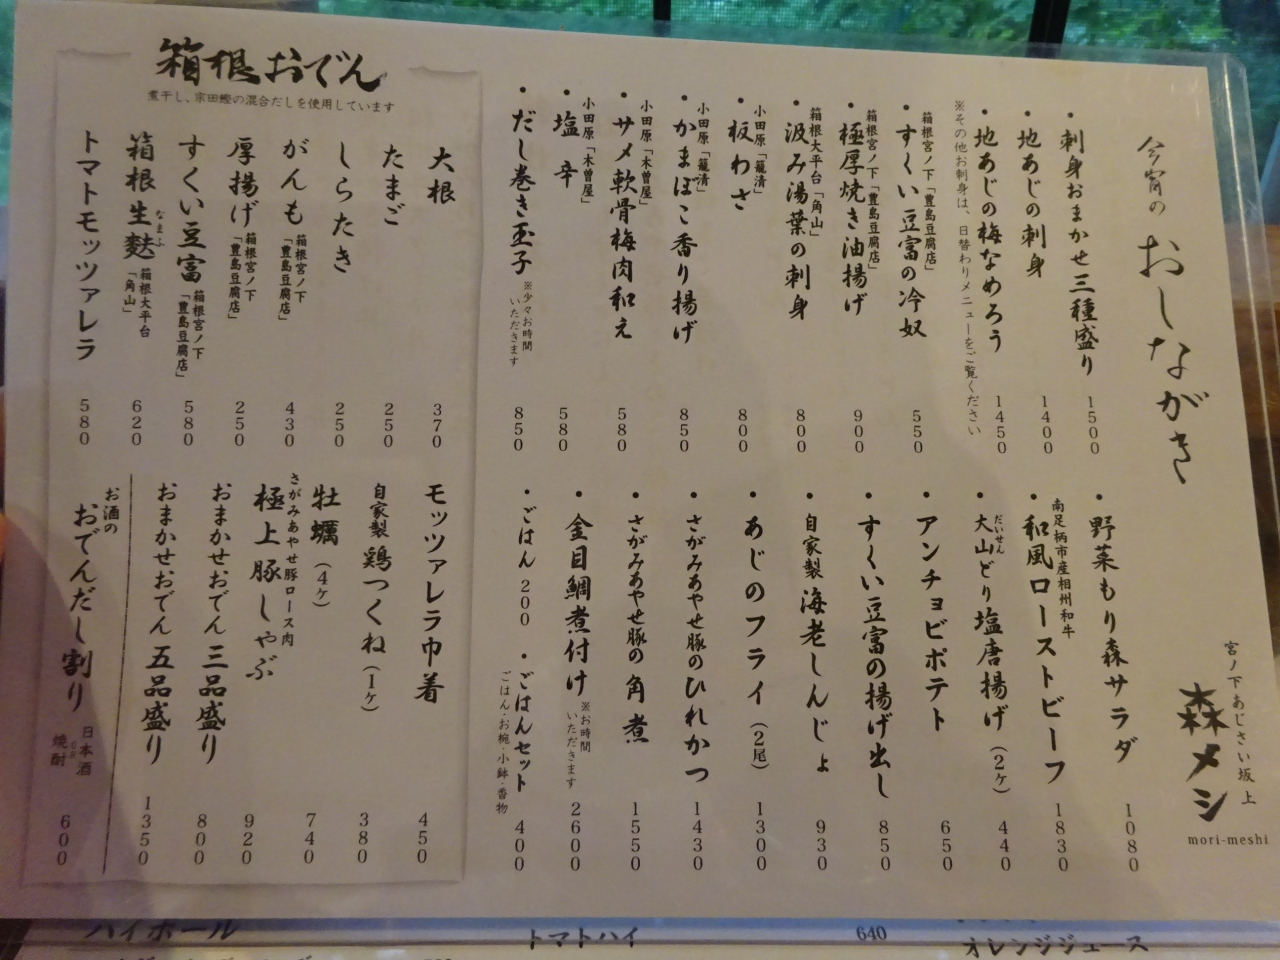 今宵の おしながき
宮ノ下あじさい坂上
森メシ
mori-meshi
・刺身おまかせ三種盛り 1500
・地あじの刺身 1400
・地あじの梅なめろう 1450
※その他お刺身は、日替わりメニューをご覧ください
箱根宮ノ下「豊島豆腐店」
・すくい豆富の冷奴 550
箱根宮ノ下「豊島豆腐店」
・極厚焼き油揚げ 900
箱根大平台「角山」
・汲み湯葉の刺身 800
小田原「籠清」
・板わさ 800
小田原「籠清」
・かまぼこ香り揚げ 850
小田原「木曽屋」
・サメ軟骨梅肉和え 580
小田原「木曽屋」
・塩辛 580
・だし巻き玉子 ※少々お時間いただきます 850
・野菜もり森サラダ 1080
南足柄市産相州和牛
・和風ローストビーフ 1830
・大山どり塩唐揚げ(2ケ) 440
だいせん
・アンチョビポテト 650
・すくい豆富の揚げ出し 850
・自家製 海老しんじょ 930
・あじのフライ(2尾) 1300
・さがみあやせ豚のひれかつ 1430
・さがみあやせ豚の角煮 1550
・金目鯛煮付け ※お時間いただきます 2600
・ごはん 200 ・ごはんセット 400
ごはん・お椀・小鉢・香物
箱根おでん
煮干し、宗田鰹の混合だしを使用しています
大根 370
たまご 250
しらたき 250
がんも 箱根宮ノ下「豊島豆腐店」 430
厚揚げ 箱根宮ノ下「豊島豆腐店」 250
すくい豆富 箱根宮ノ下「豊島豆腐店」 580
箱根生麩 箱根大平台「角山」 620
なまふ
トマトモッツァレラ 580
モッツァレラ巾着 450
自家製 鶏つくね(1ケ) 380
牡蠣(4ケ) 740
さがみあやせ豚ロース肉
極上豚しゃぶ 920
おまかせおでん 三品盛り 800
おまかせおでん 五品盛り 1350
お酒の
おでんだし割り 日本酒 焼酎 600
ハイボール
トマトハイ 640
オレンジジュース